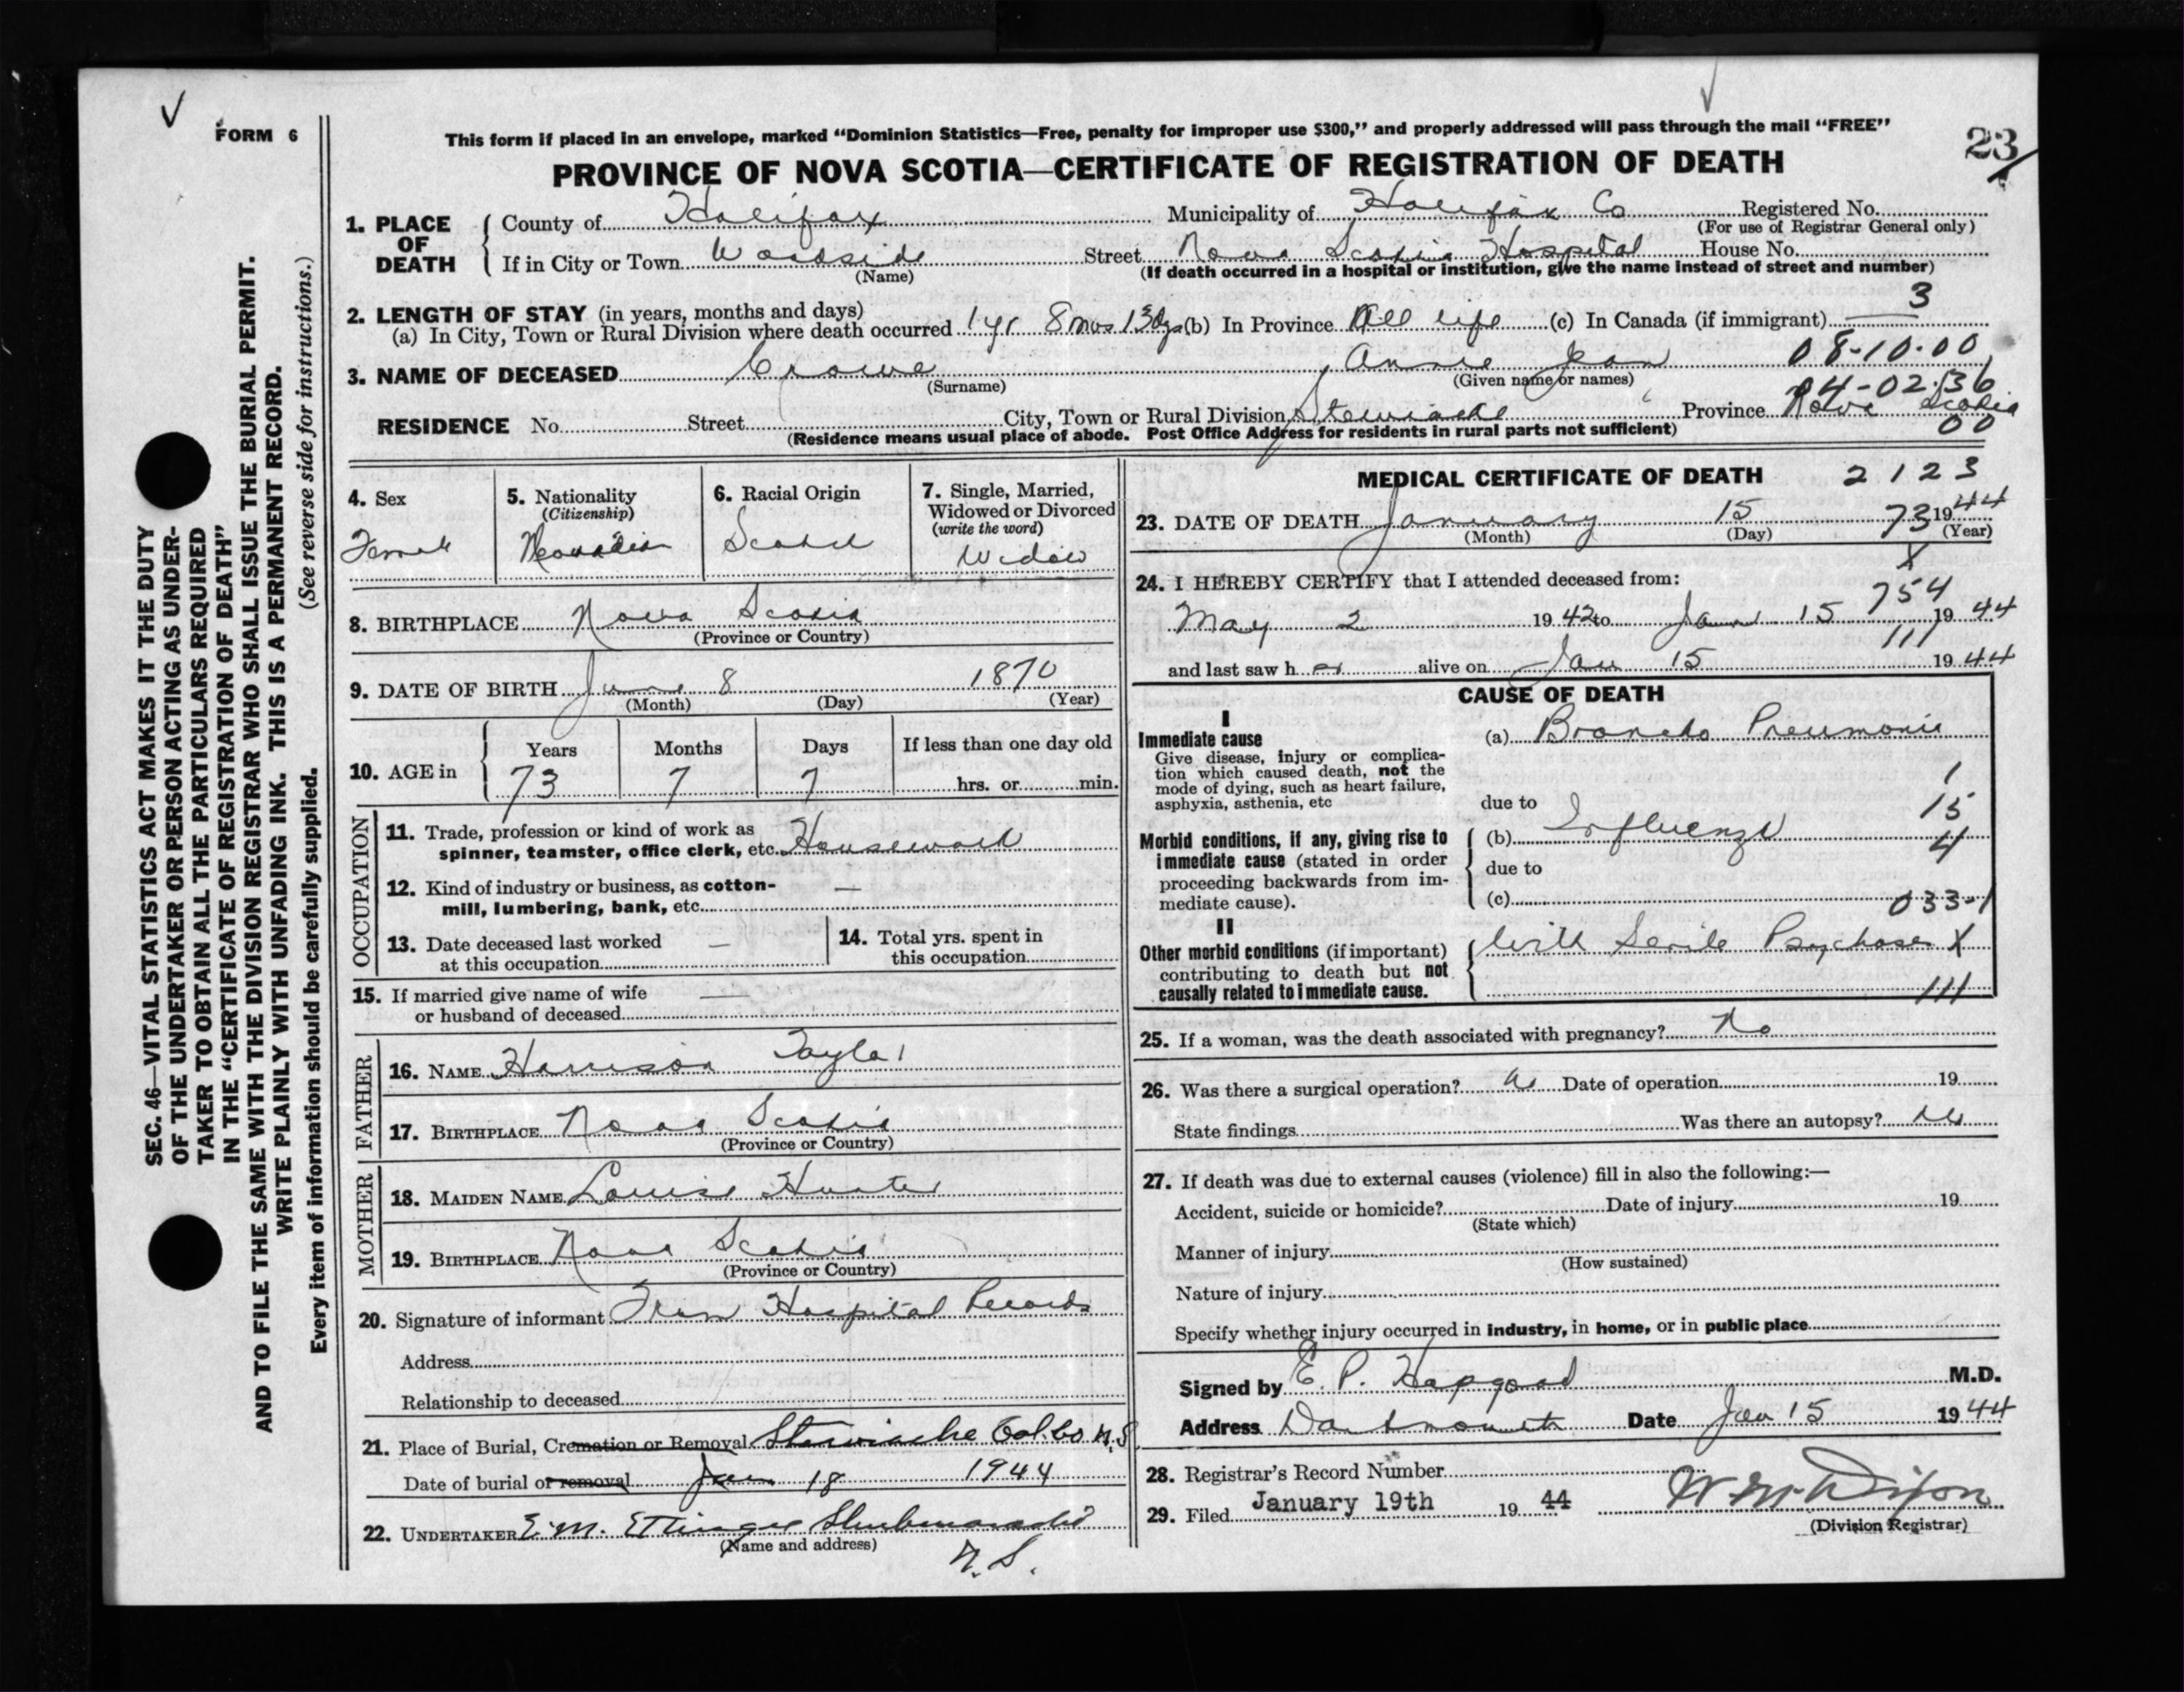 FORM 6
This form if placed in an envelope, marked “Dominion Statistics—Free, penalty for improper use $300,” and properly addressed will pass through the mail “FREE”
23
PROVINCE OF NOVA SCOTIA—CERTIFICATE OF REGISTRATION OF DEATH
1. PLACE OF DEATH
County of Halifax Municipality of Halifax Co Registered No.
(For use of Registrar General only)
If in City or Town Woodside Street Nova Scotia Hospital House No.
(Name) (If death occurred in a hospital or institution, give the name instead of street and number)
2. LENGTH OF STAY (in years, months and days) 3
(a) In City, Town or Rural Division where death occurred 1 yr 8 mos 13 dys (b) In Province All life (c) In Canada (if immigrant)
08-10-00
3. NAME OF DECEASED Crowe, Annie Jean
(Surname) (Given name or names)
04-02-36
RESIDENCE No. Street City, Town or Rural Division Stewiacke Province Nova Scotia
(Residence means usual place of abode. Post Office Address for residents in rural parts not sufficient) 00
4. Sex
Female
5. Nationality
(Citizenship)
Canadian
6. Racial Origin
Scotch
7. Single, Married,
Widowed or Divorced
(write the word)
Widow
8. BIRTHPLACE Nova Scotia
(Province or Country)
9. DATE OF BIRTH June 8 1870
(Month) (Day) (Year)
10. AGE in
Years Months Days If less than one day old
73 7 7 hrs. or min.
OCCUPATION
11. Trade, profession or kind of work as
spinner, teamster, office clerk, etc. Housework
12. Kind of industry or business, as cotton-
mill, lumbering, bank, etc. —
13. Date deceased last worked
at this occupation —
14. Total yrs. spent in
this occupation
15. If married give name of wife
or husband of deceased —
FATHER
16. NAME Harrison Taylor
17. BIRTHPLACE Nova Scotia
(Province or Country)
MOTHER
18. MAIDEN NAME Louise Hunter
19. BIRTHPLACE Nova Scotia
(Province or Country)
20. Signature of informant From Hospital Records
Address
Relationship to deceased
21. Place of Burial, Cremation or Removal Stewiacke Col. Co N.S.
Date of burial or removal Jan 18 1944
22. UNDERTAKER E. M. Ettinger Shubenacadie
(Name and address) N.S.
MEDICAL CERTIFICATE OF DEATH 2123
23. DATE OF DEATH January 15 73 1944
(Month) (Day) (Year)
X
24. I HEREBY CERTIFY that I attended deceased from:
754
May 2 1942 to Jan 15 1944
111
and last saw her alive on Jan 15 1944
CAUSE OF DEATH
I
Immediate cause
Give disease, injury or complica-
tion which caused death, not the
mode of dying, such as heart failure,
asphyxia, asthenia, etc
(a) Broncho Pneumonia
1
due to 15
Morbid conditions, if any, giving rise to
immediate cause (stated in order
proceeding backwards from im-
mediate cause).
(b) Influenza 4
due to
(c) 033-1
II
Other morbid conditions (if important)
contributing to death but not
causally related to immediate cause.
With Senile Psychoses X
111
25. If a woman, was the death associated with pregnancy? No
26. Was there a surgical operation? No Date of operation 19
State findings Was there an autopsy? No
27. If death was due to external causes (violence) fill in also the following:—
Accident, suicide or homicide? Date of injury 19
(State which)
Manner of injury
(How sustained)
Nature of injury
Specify whether injury occurred in industry, in home, or in public place
Signed by E. P. Hapgood M.D.
Address Dartmouth Date Jan 15 1944
28. Registrar's Record Number
29. Filed January 19th 19 44 W. M. Dixon
(Division Registrar)
SEC. 46—VITAL STATISTICS ACT MAKES IT THE DUTY
OF THE UNDERTAKER OR PERSON ACTING AS UNDER-
TAKER TO OBTAIN ALL THE PARTICULARS REQUIRED
IN THE “CERTIFICATE OF REGISTRATION OF DEATH”
AND TO FILE THE SAME WITH THE DIVISION REGISTRAR WHO SHALL ISSUE THE BURIAL PERMIT.
WRITE PLAINLY WITH UNFADING INK. THIS IS A PERMANENT RECORD.
(See reverse side for instructions.)
Every item of information should be carefully supplied.